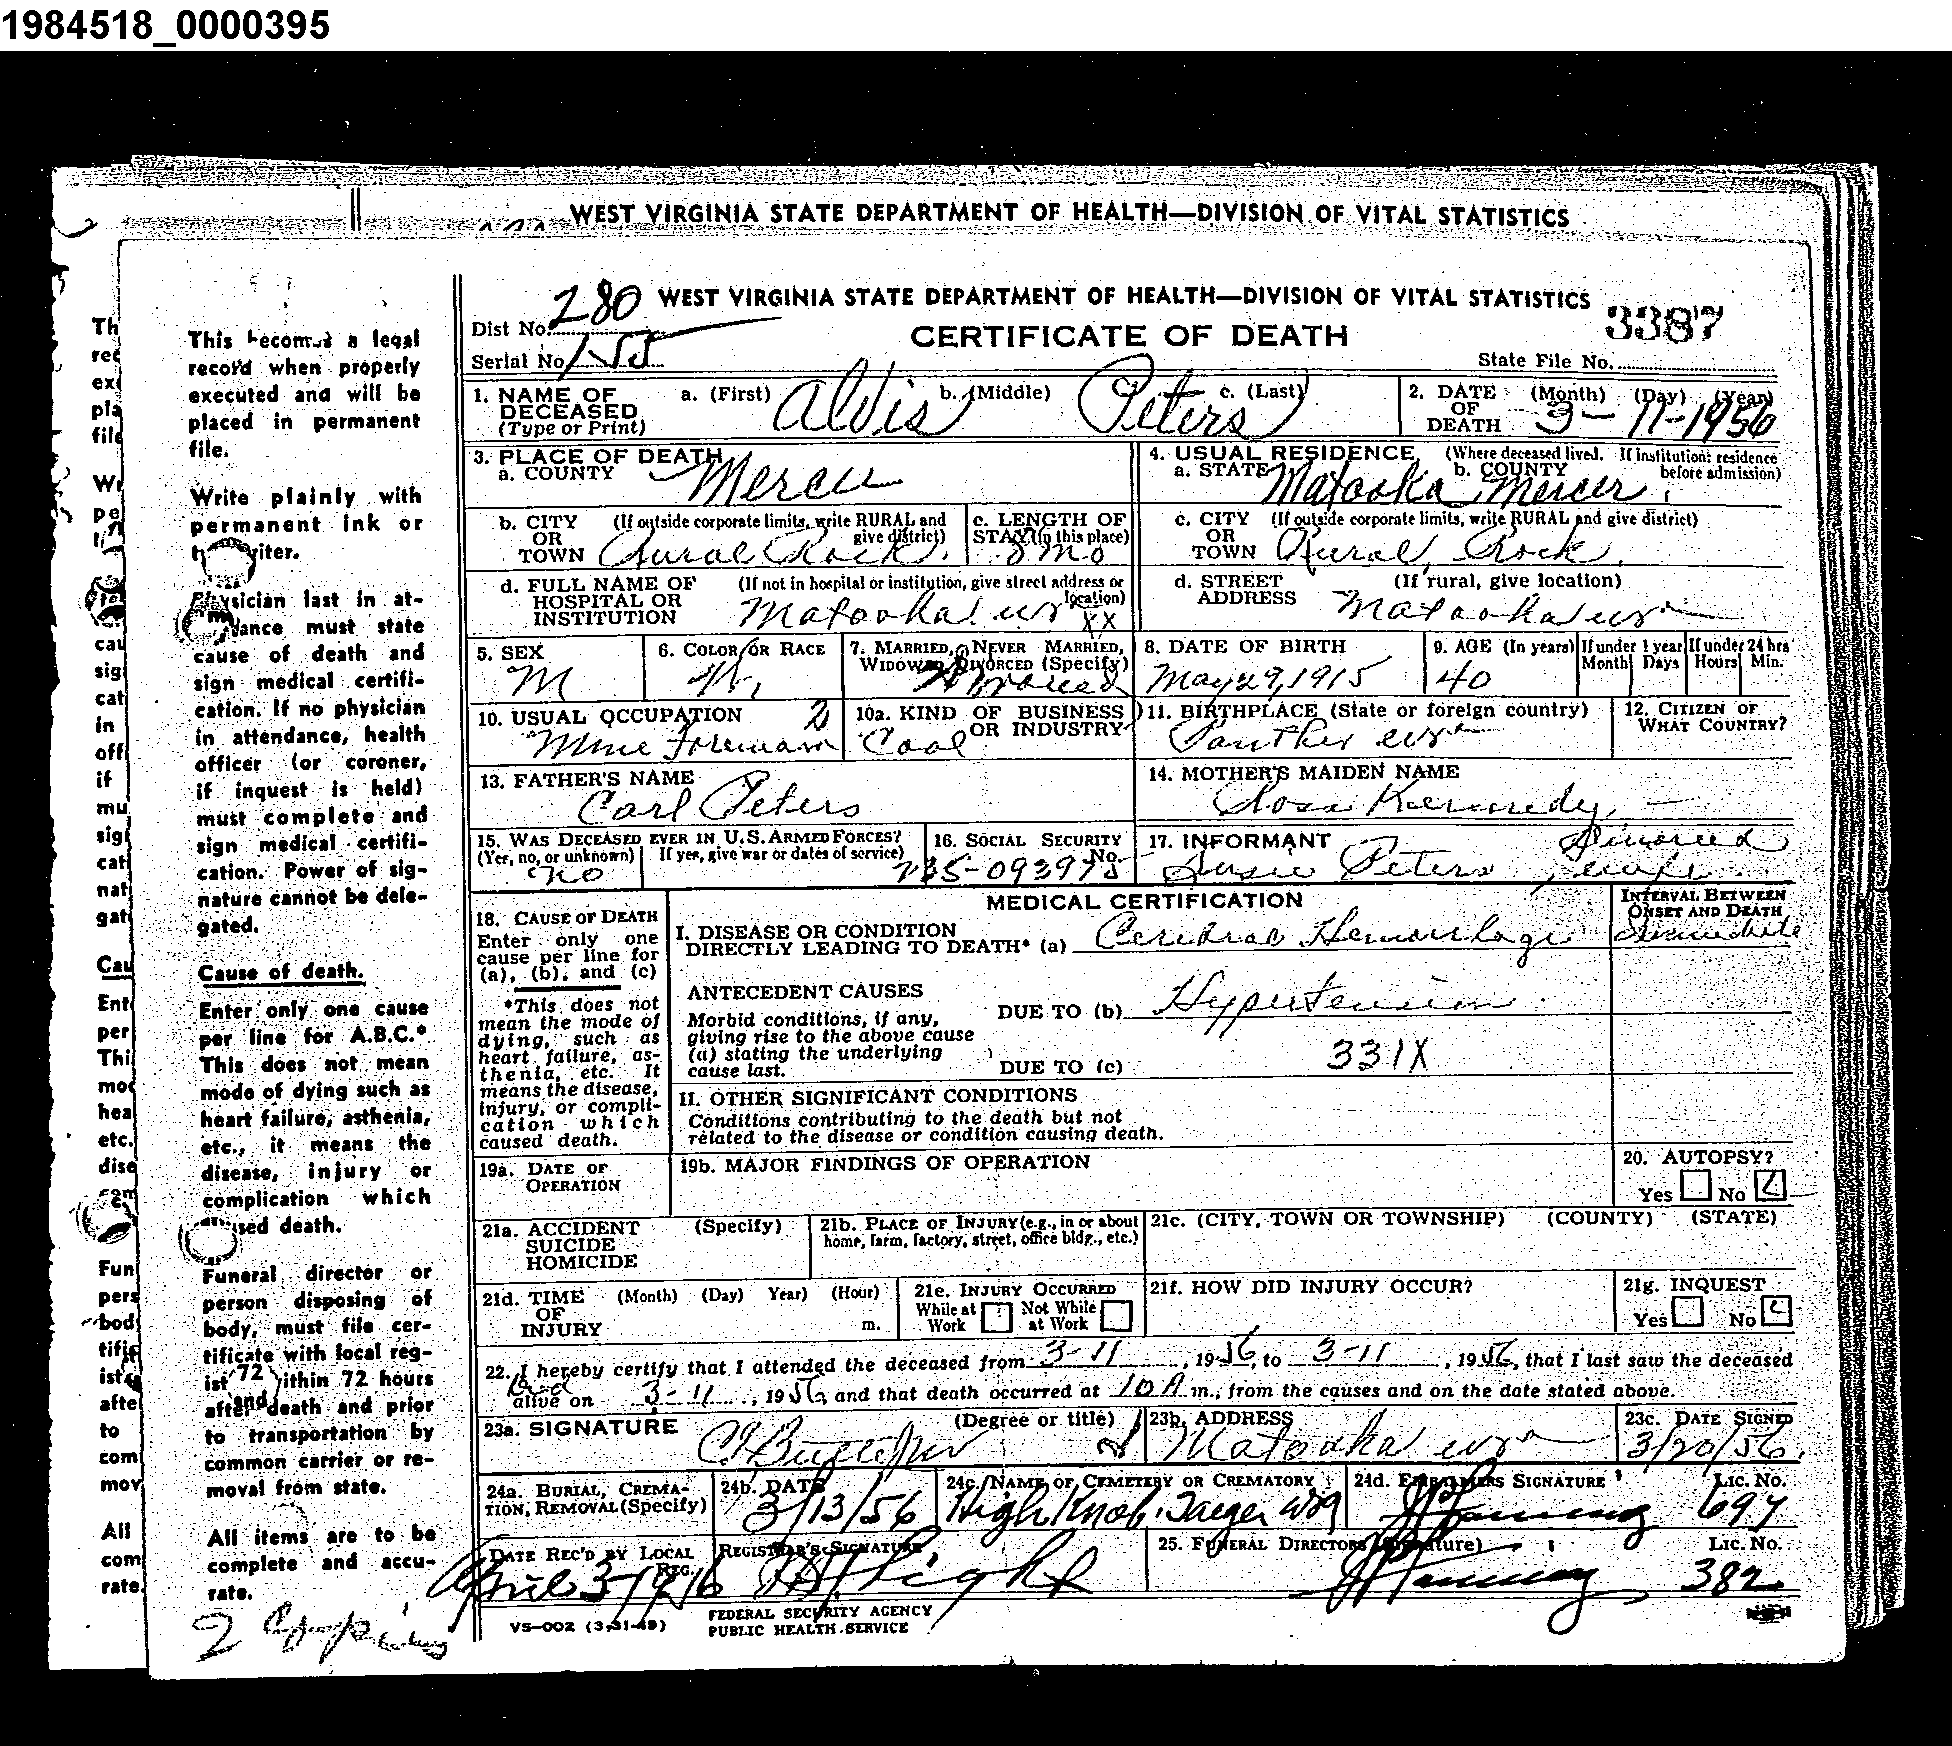 1984518_0000395
WEST VIRGINIA STATE DEPARTMENT OF HEALTH—DIVISION OF VITAL STATISTICS
280 WEST VIRGINIA STATE DEPARTMENT OF HEALTH—DIVISION OF VITAL STATISTICS
Dist No. CERTIFICATE OF DEATH 3387
Serial No. 155 State File No.
1. NAME OF DECEASED (Type or Print) a. (First) b. (Middle) c. (Last) Alvis Peters
2. DATE OF DEATH (Month) (Day) (Year) 3-11-1956
3. PLACE OF DEATH
a. COUNTY Mercer
4. USUAL RESIDENCE (Where deceased lived. If institution: residence before admission)
a. STATE b. COUNTY Matoaka Mercer
b. CITY OR TOWN (If outside corporate limits, write RURAL and give district) Rural Rock.
c. LENGTH OF STAY (in this place) 8 mo
c. CITY OR TOWN (If outside corporate limits, write RURAL and give district) Rural, Rock.
d. FULL NAME OF HOSPITAL OR INSTITUTION (If not in hospital or institution, give street address or location) Matoaka wva XX
d. STREET ADDRESS (If rural, give location) Matoaka wva
5. SEX M
6. COLOR OR RACE W.
7. MARRIED, NEVER MARRIED, WIDOWED, DIVORCED (Specify) Divorced
8. DATE OF BIRTH May 29, 1915
9. AGE (In years) 40 If under 1 year Month Days If under 24 hrs Hours Min.
10. USUAL OCCUPATION Mine Foreman
10a. KIND OF BUSINESS OR INDUSTRY Coal
11. BIRTHPLACE (State or foreign country) Panther wva
12. CITIZEN OF WHAT COUNTRY?
13. FATHER'S NAME Carl Peters
14. MOTHER'S MAIDEN NAME Rosa Kennedy
15. WAS DECEASED EVER IN U.S. ARMED FORCES? (Yes, no, or unknown) If yes, give war or dates of service) no
16. SOCIAL SECURITY No. 235-093975
17. INFORMANT Susie Peters, Divorced wife
MEDICAL CERTIFICATION
INTERVAL BETWEEN ONSET AND DEATH
18. CAUSE OF DEATH
Enter only one cause per line for (a), (b), and (c)
*This does not mean the mode of dying, such as heart failure, asthenia, etc. It means the disease, injury, or complication which caused death.
I. DISEASE OR CONDITION DIRECTLY LEADING TO DEATH* (a) Cerebral Hemorrhage Immediate
ANTECEDENT CAUSES
Morbid conditions, if any, giving rise to the above cause (a) stating the underlying cause last.
DUE TO (b) Hypertension
331X
DUE TO (c)
II. OTHER SIGNIFICANT CONDITIONS
Conditions contributing to the death but not related to the disease or condition causing death.
19a. DATE OF OPERATION
19b. MAJOR FINDINGS OF OPERATION
20. AUTOPSY?
Yes No
21a. ACCIDENT SUICIDE HOMICIDE (Specify)
21b. PLACE OF INJURY (e.g., in or about home, farm, factory, street, office bldg., etc.)
21c. (CITY, TOWN OR TOWNSHIP) (COUNTY) (STATE)
21d. TIME OF INJURY (Month) (Day) Year) (Hour) m.
21e. INJURY OCCURRED While at Work Not While at Work
21f. HOW DID INJURY OCCUR?
21g. INQUEST Yes No
22. I hereby certify that I attended the deceased from 3-11, 1956, to 3-11, 1956, that I last saw the deceased
alive on 3-11, 1956, and that death occurred at 10 A m., from the causes and on the date stated above.
23a. SIGNATURE (Degree or title)
23b. ADDRESS Matoaka wva
23c. DATE SIGNED 3/20/56.
24a. BURIAL, CREMATION, REMOVAL (Specify)
24b. DATE 3/13/56
24c. NAME OF CEMETERY OR CREMATORY High Knob, Iaeger
24d. EMBALMERS SIGNATURE Lic. No. 697
DATE REC'D BY LOCAL REG. April 3-1956
REGISTRAR'S SIGNATURE
25. FUNERAL DIRECTOR (Signature) Lic. No. 382
VS-002 (3-31-49)
FEDERAL SECURITY AGENCY
PUBLIC HEALTH SERVICE
This becomes a legal
record when properly
executed and will be
placed in permanent
file.
Write plainly with
permanent ink or
Physician last in at-
tendance must state
cause of death and
sign medical certifi-
cation. If no physician
in attendance, health
officer (or coroner,
if inquest is held)
must complete and
sign medical certifi-
cation. Power of sig-
nature cannot be dele-
gated.
Cause of death.
Enter only one cause
per line for A.B.C.*
This does not mean
mode of dying such as
heart failure, asthenia,
etc., it means the
disease, injury or
complication which
caused death.
Funeral director or
person disposing of
body, must file cer-
tificate with local reg-
ist 72 within 72 hours
after and death and prior
to transportation by
common carrier or re-
moval from state.
All items are to be
complete and accu-
rate.
2 Copies